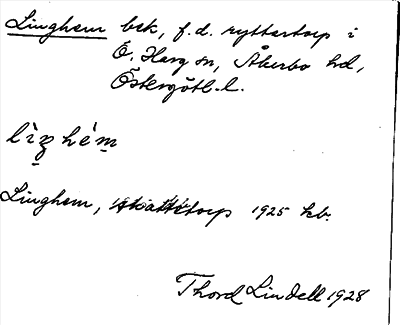 Linghem bek, f.d. ryttartorp i
Ö. Harg sn, Åkerbo hd,
Östergötl. l.
lìŋhém
Linghem, torp 1925 kb.
Thord Lindell 1928